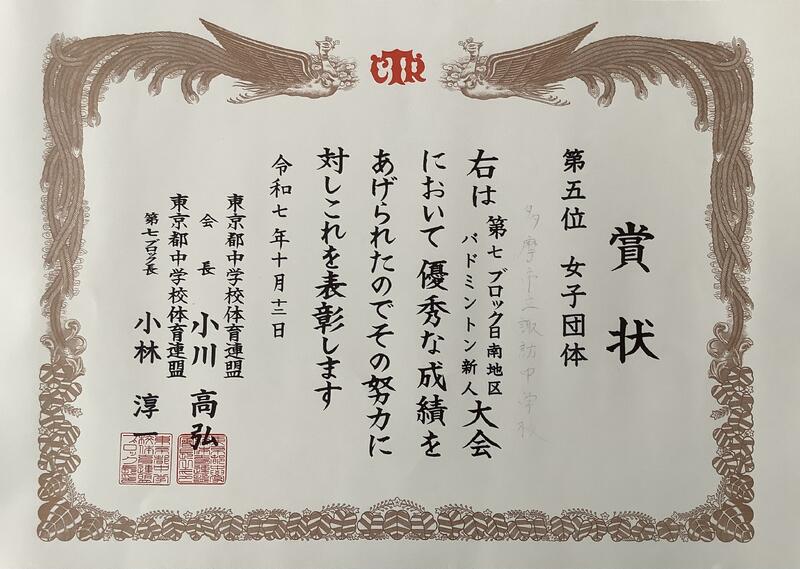 賞状
第五位 女子団体
多摩市立諏訪中学校
右は 第七ブロック日南地区
バドミントン新人 大会
において優秀な成績を
あげられたのでその努力に
対しこれを表彰します
令和七年十月十三日
東京都中学校体育連盟
会長 小川高弘
東京都中学校体育連盟
第七ブロック長 小林淳一